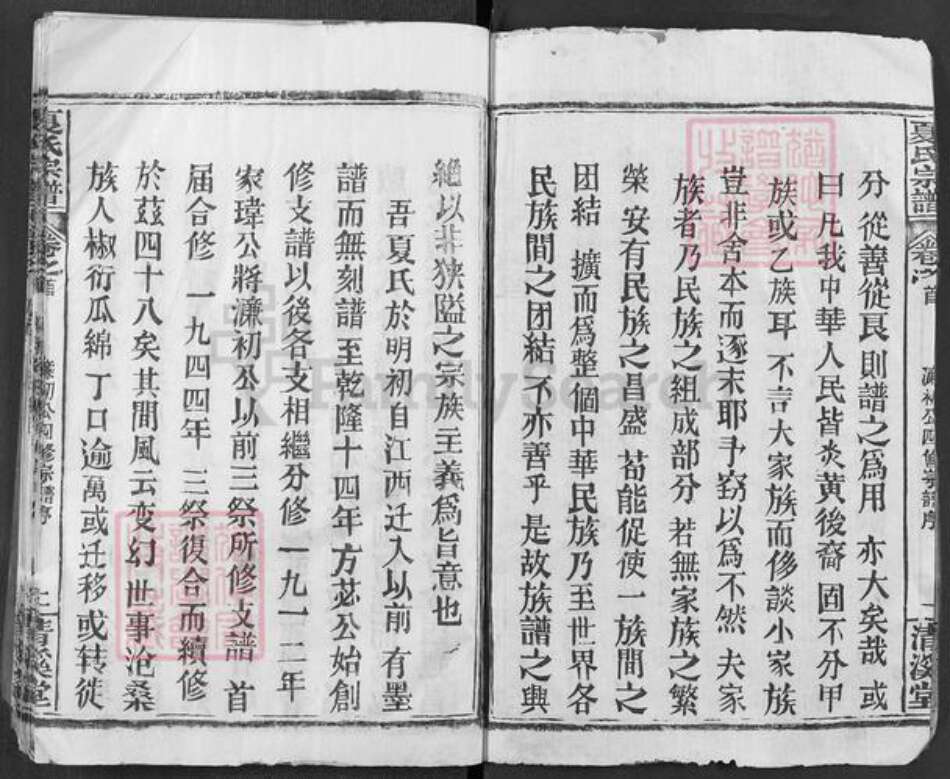 夏氏宗譜
卷之首
濂初公四修宗譜序
清溪堂
分從善從良則譜之為用 亦大矣哉 或
曰凡我中華人民皆炎黄後裔 固不分甲
族或乙族耳 不言大家族而侈談小家族
豈非舍本而逐末耶予窃以為不然 夫家
族者乃民族之組成部分 若無家族之繁
榮 安有民族之昌盛 苟能促使一族間之
团結 擴而為整個中華民族乃至世界各
民族間之团結 不亦善乎 是故族譜之興
絕以非狹隘之宗族主義為旨意也
吾夏氏於明初自江西迁入以前 有墨
譜而無刻譜至乾隆十四年方苾公始創
修支譜以後各支相繼分修 一九一二年
家瑋公將濂初公以前三祭所修支譜 首
届合修 一九四四年 三祭復合而續修
於茲四十八矣其間風云变幻 世事沧桑
族人椒衍瓜綿 丁口逾萬或迁移或转徙
夏氏宗譜
卷之首
濂初公四修宗譜序
二
清溪堂
FamilySearch